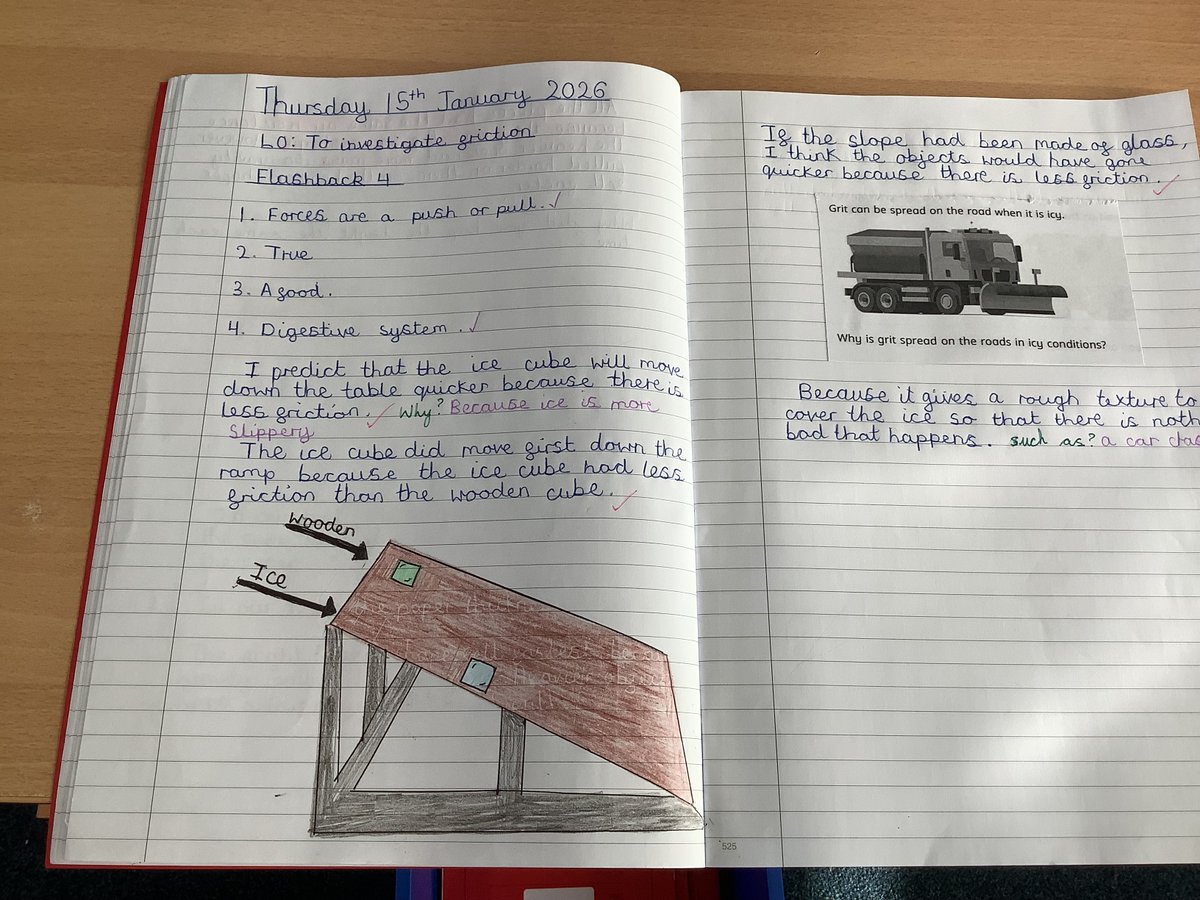 Thursday 15th January 2026
LO: To investigate friction
Flashback 4
1. Forces are a push or pull.
2. True
3. A food.
4. Digestive system.
I predict that the ice cube will move
down the table quicker because there is
less friction. Why? Because ice is more
slippery
The ice cube did move first down the
ramp because the ice cube had less
friction than the wooden cube.
Wooden
Ice
525
If the slope had been made of glass,
I think the objects would have gone
quicker because there is less friction.
Grit can be spread on the road when it is icy.
Why is grit spread on the roads in icy conditions?
Because it gives a rough texture to
cover the ice so that there is noth
bad that happens. such as? a car